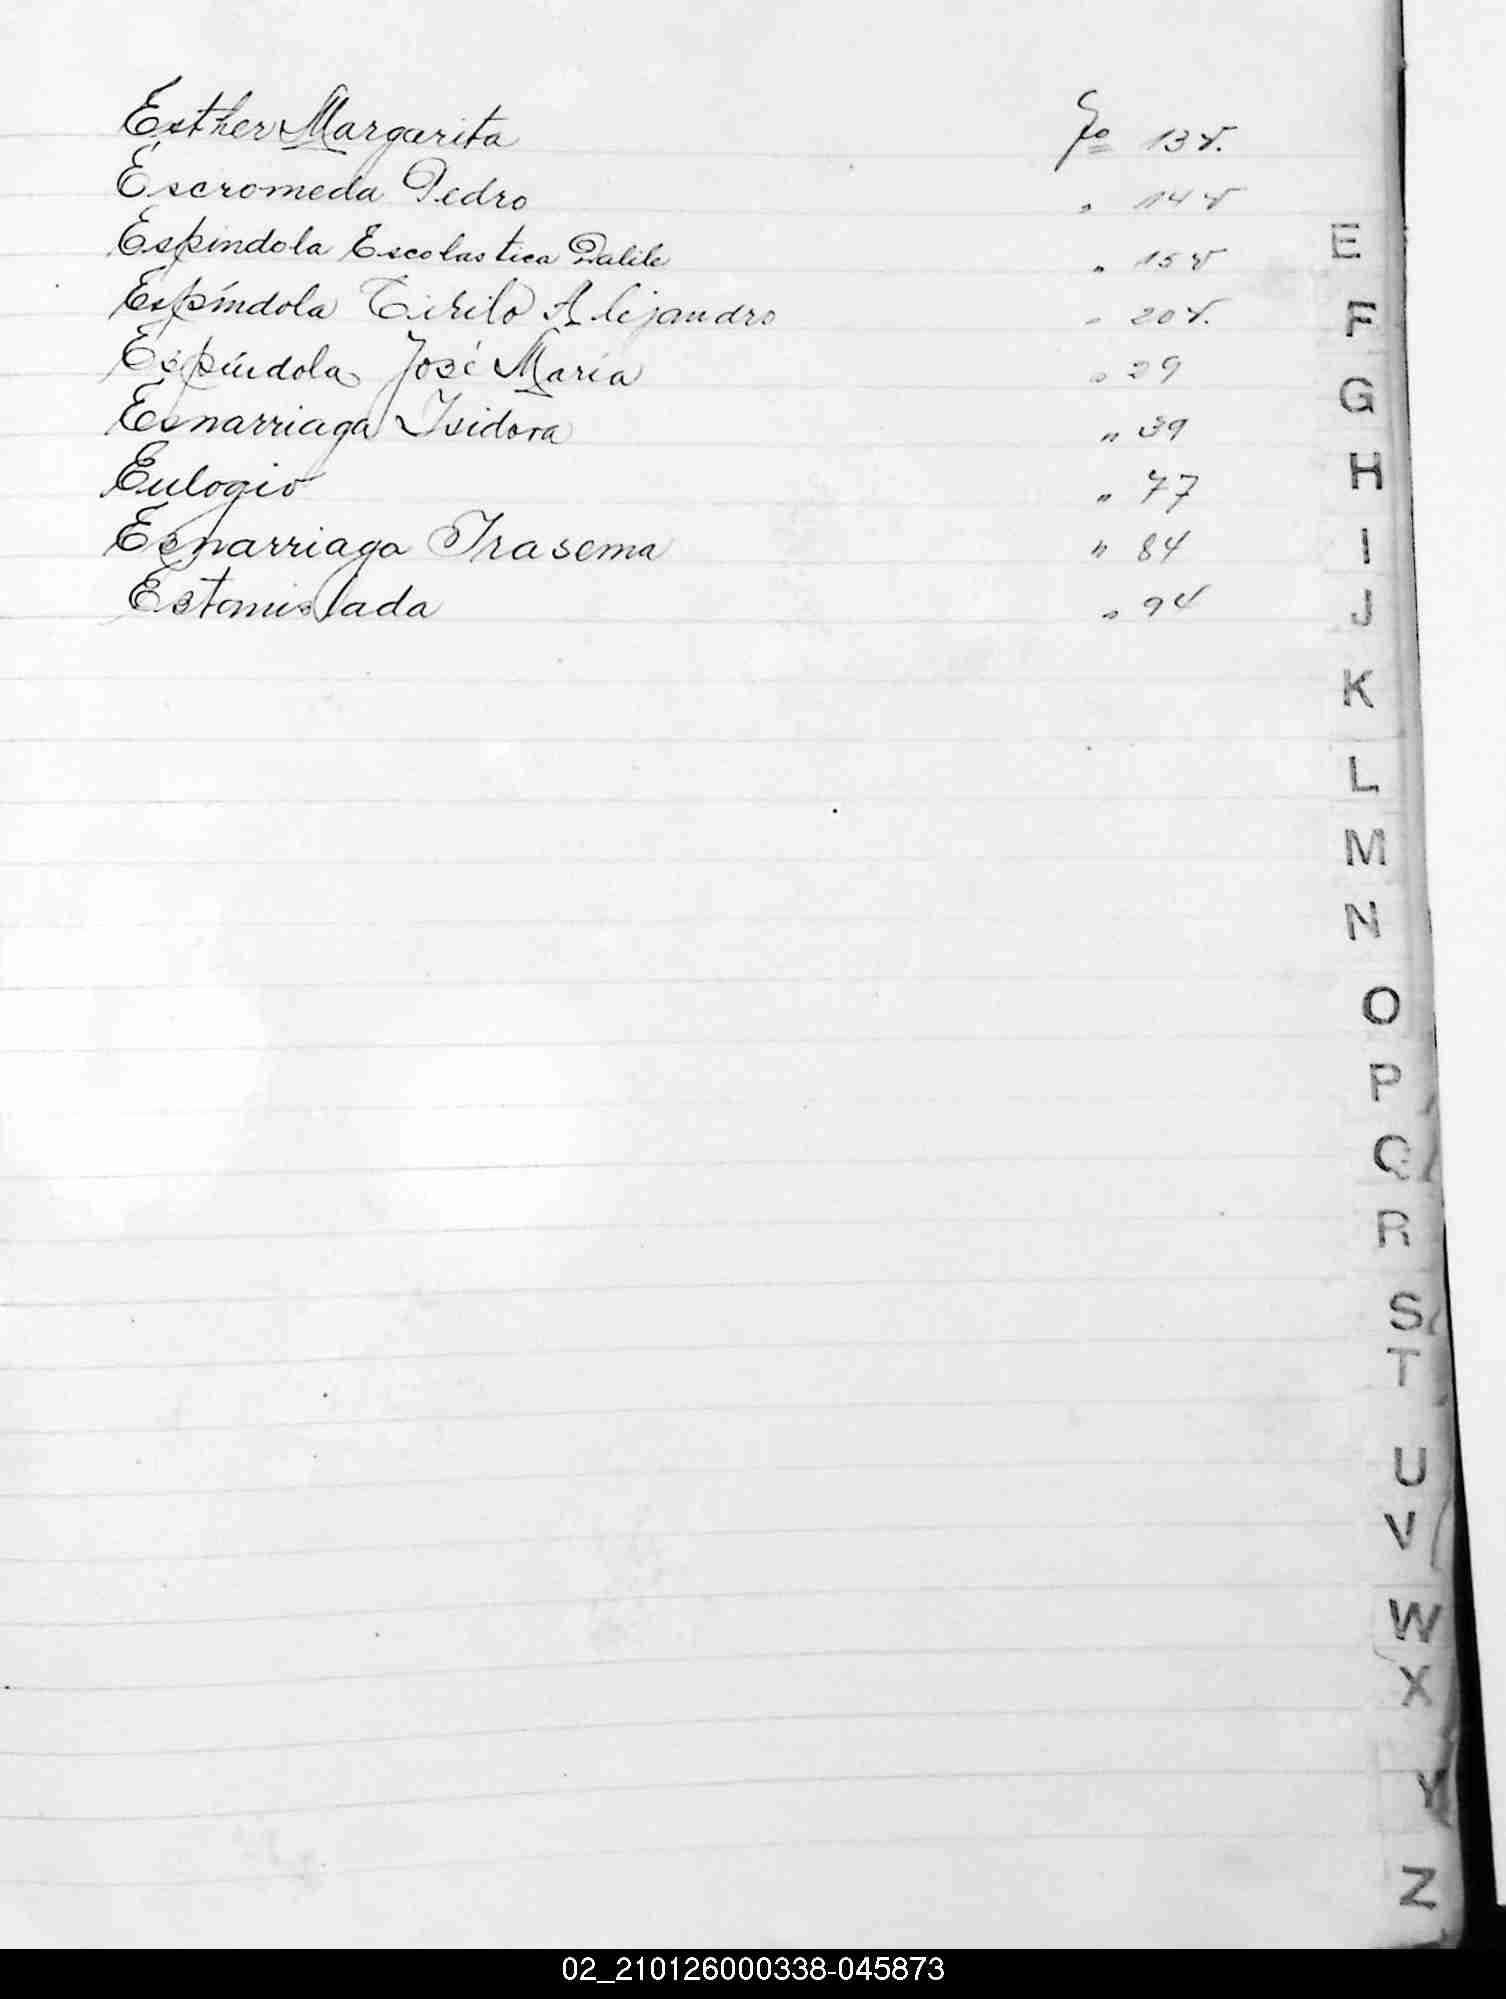 Esther Margarita fo 13 v.
Escromeda Pedro " 14 v
Espindola Escolastica Dalile " 15 v
Espíndola Cirilo Alejandro " 20 v.
Espíndola José María " 29
Esnarriaga Isidora " 39
Eulogio " 77
Esnarriaga Irasema " 84
Estanislada " 94
E
F
G
H
I
J
K
L
M
N
O
P
Q
R
S
T
U
V
W
X
Y
Z
02_210126000338-045873